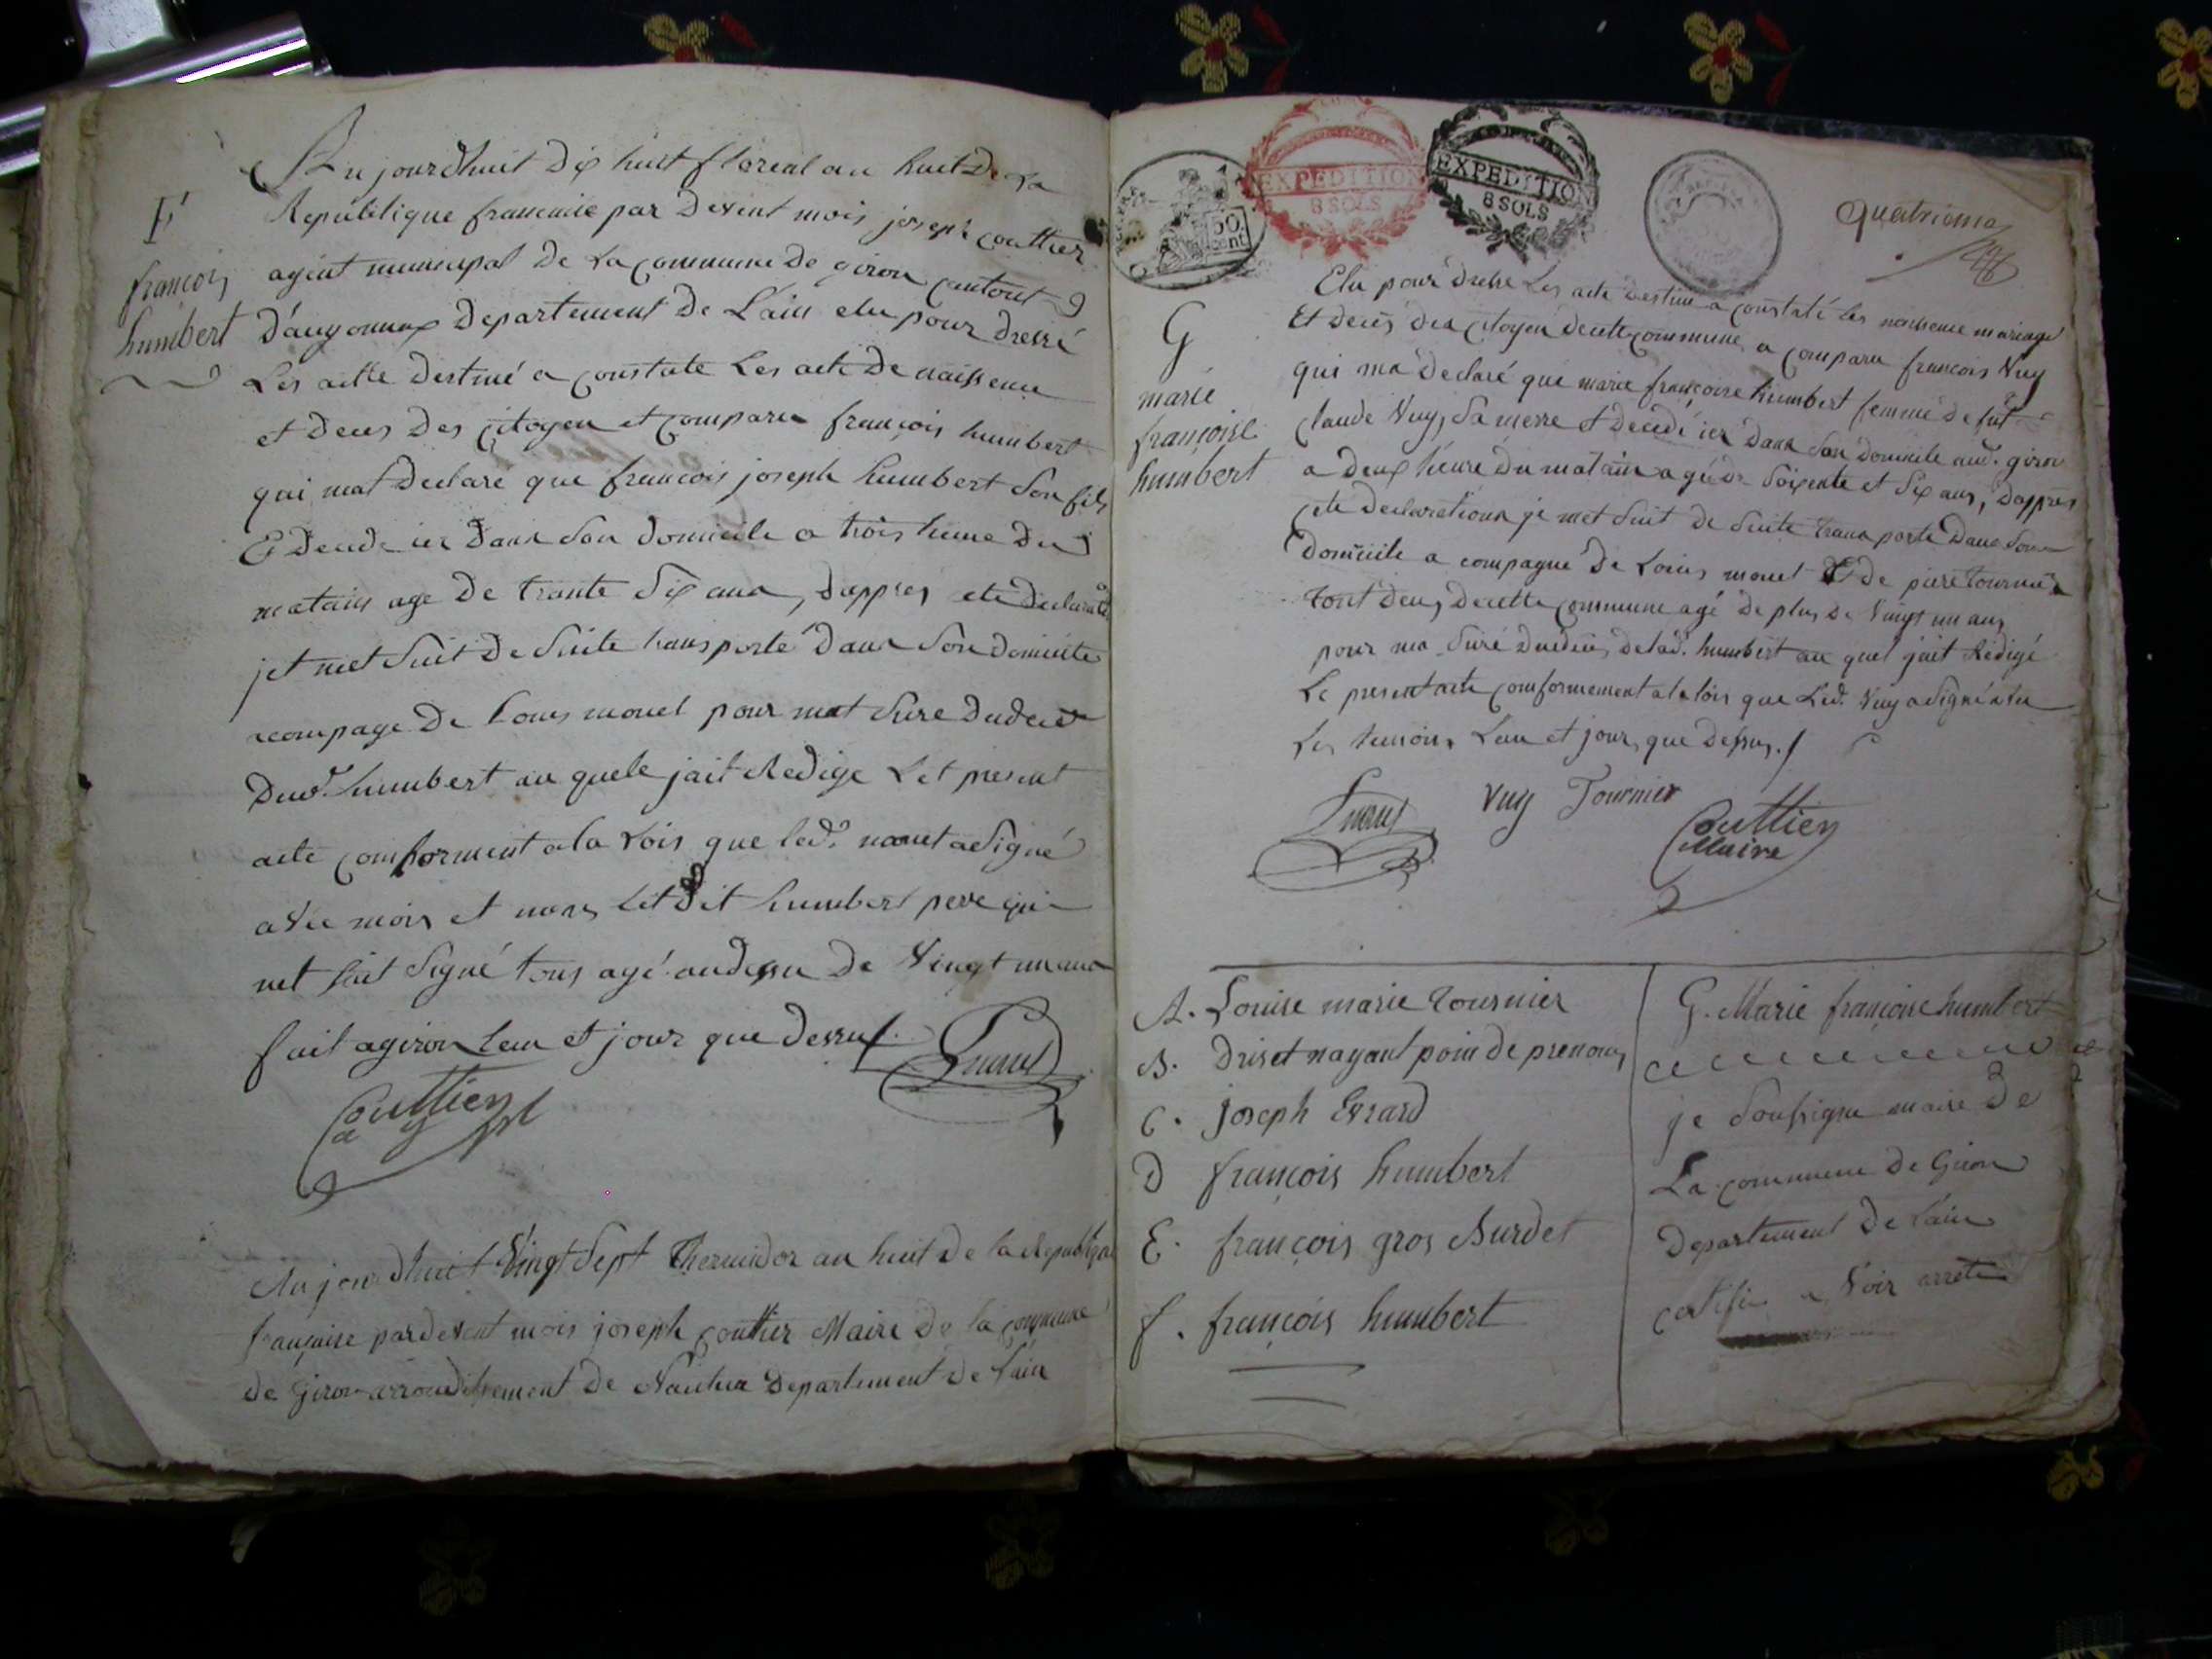 Aujourdhuit dix huit floreal an huit De La
F
Republique francaise par Devent mois joseph couttier
françois
agent municipal De La commune De giron cantont
humbert
Departement De L'ain elu pour Dressé
Les actte Destiné a constate Les acte De naissence
et Deces Des citoyen et comparu françois humbert
qui mat Declare que francois joseph humbert Son fils
Et Decede ier Dans Son Domicile a trois heure Du
matain age De trante Six ans, Dappres cete
jet met Suit De Suite transporté Dans Son Domicile
acompage De Louis monet pour mat Sure Dudeces
Dud. humbert au quele jait Redige Let present
acte conforment a la Lois que led. monet a Signé
avec mois et nons Let Dit humbert pere qui
net Sait Signé tous agé audessu De Vingt un ans
fait a giron Lan et jour que Dessus.
Couttier
Aujourdhuit Vingt Sept Thermidor an huit De la
française pardevent mois joseph couttier Maire De la commune
de Giron arrondissement De Nantua Departement De Lain
50.
cent
EXPEDITION
8 SOLS
EXPEDITION
8 SOLS
quatrieme
Elu pour Dresse Les acte Destine a constaté Les naissence mariage
G
Et Deces Des citoyen Decette commune, a comparu francois Vuy
marie
qui ma Declaré que marie françoise humbert femme De fut
françoise
claude Vuy, Sa merre et Decedé ier Dans Son Domicile aud. giron
humbert
a Deux heure Du matain agé De Soixente et Six ans, Dappres
cete Declarationn je met Suit De Suite transporté Dans Son
Domicile a compagné De Louis monet Et De piere tournier
tout Deux Decette commune agé De plus De Vingt un ans
pour ma Suré Dudeces Delad. humbert au quel jait Redigé
Le present acte conformement a la lois que Led. Vuy a Signé
Les temoins Lan et jour que Dessus.
Vuy Tournier
Couttier
Maire
A. Louise marie tournier
B. Driset nayant poin de prenoms
C. joseph Evrard
D françois humbert
E. françois gros Burdet
f. françois humbert
G. Marie françoise humbert
je Soussigne maire De
La commune De Giron
Departement De Lain
certifie a Voir arrete